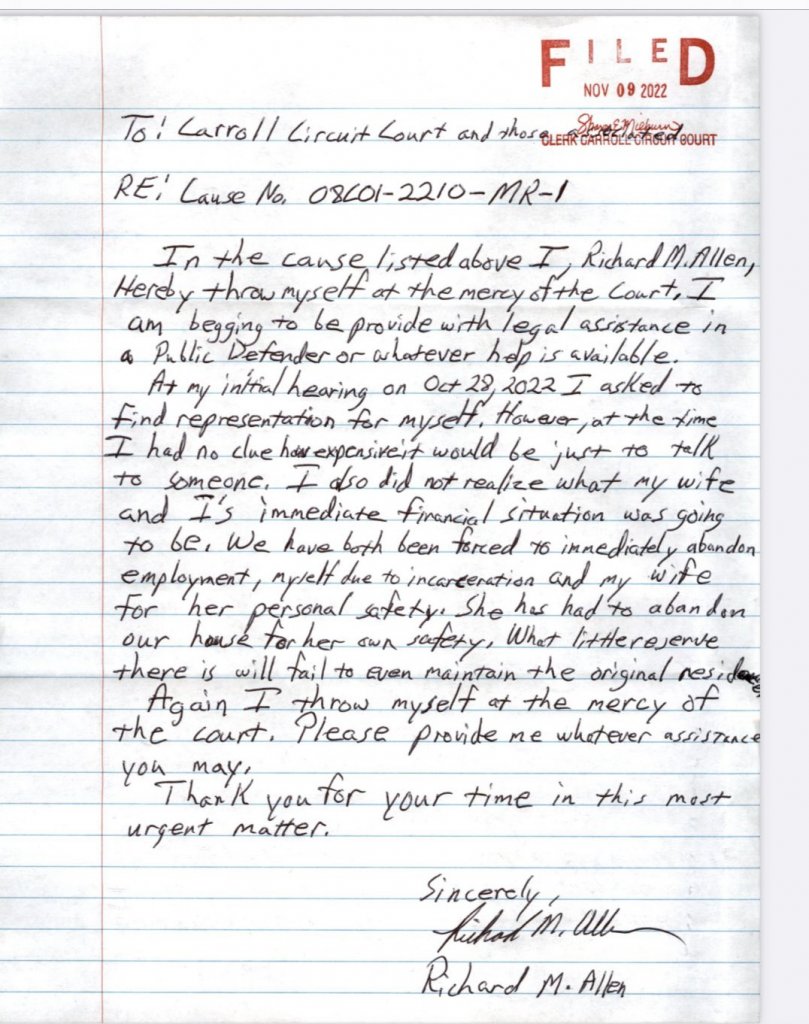 FILED
NOV 09 2022
To: Carroll Circuit Court and those associated
CLERK CARROLL CIRCUIT COURT
RE: Cause No. 08C01-2210-MR-1
In the cause listed above I, Richard M. Allen,
Hereby throw myself at the mercy of the Court. I
am begging to be provide with legal assistance in
a Public Defender or whatever help is available.
At my initial hearing on Oct 28, 2022 I asked to
find representation for myself. However, at the time
I had no clue how expensive it would be just to talk
to someone. I also did not realize what my wife
and I's immediate financial situation was going
to be. We have both been forced to immediately abandon
employment, myself due to incarceration and my wife
for her personal safety. She has had to abandon
our house for her own safety. What little reserve
there is will fail to even maintain the original
Again I throw myself at the mercy of
the court. Please provide me whatever assistance
you may.
Thank you for your time in this most
urgent matter.
Sincerely,
Richard M. Allen
Richard M. Allen